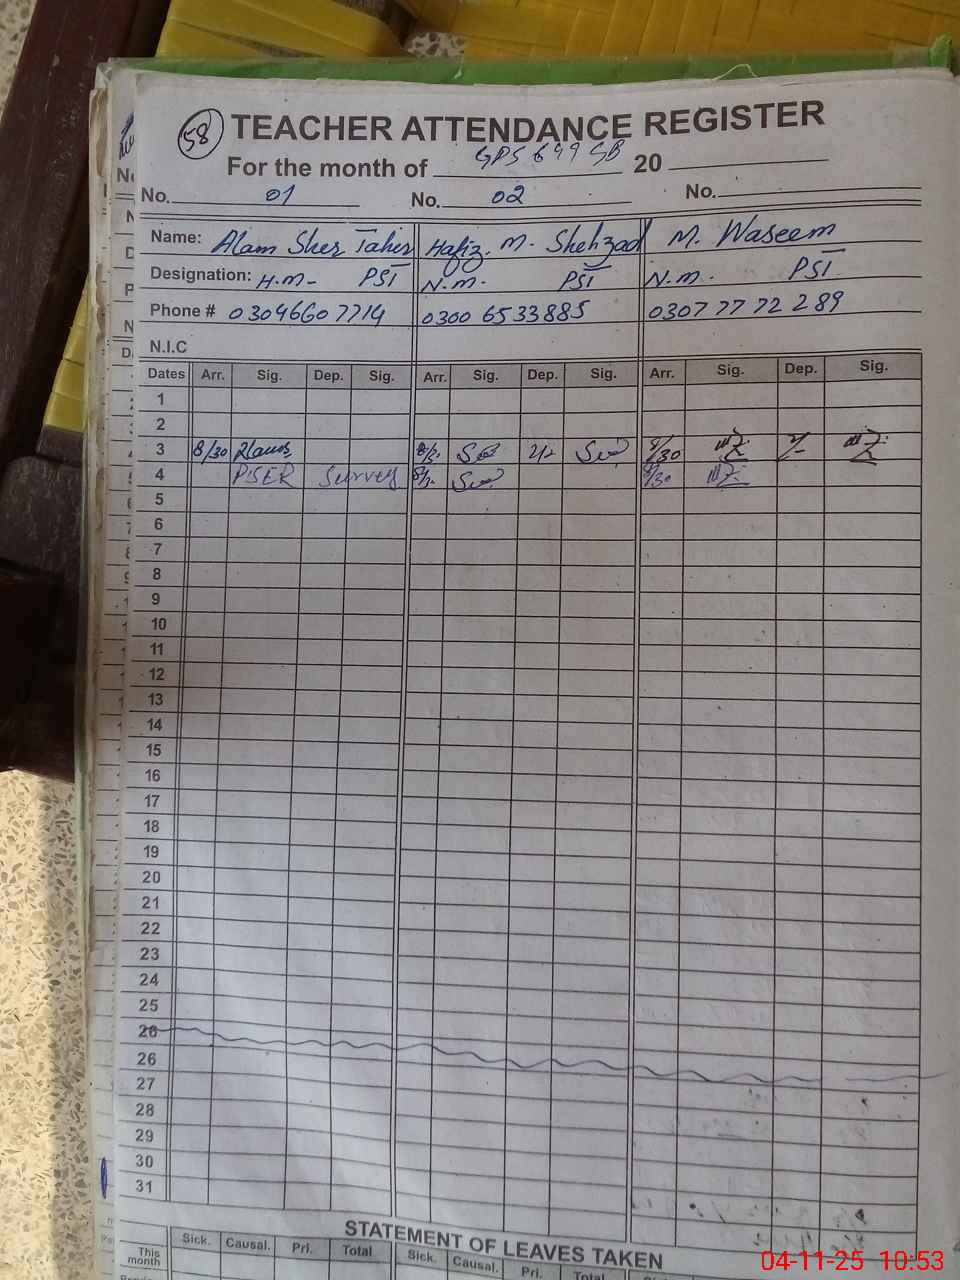 58 TEACHER ATTENDANCE REGISTER
For the month of GPS 699 GB 20
No. 01 No. 02 No.
Name: Alam Sher Taher Hafiz. M. Shehzad M. Waseem
Designation: H.M- PST N.M. PST N.M. PST
Phone # 03046607714 0300 6533885 0307 77 72 289
N.I.C
Dates Arr. Sig. Dep. Sig. Arr. Sig. Dep. Sig. Arr. Sig. Dep. Sig.
1
2
3 8/30 8/30
4 PSER Survey 8/30
5
6
7
8
9
10
11
12
13
14
15
16
17
18
19
20
21
22
23
24
25
26
26
27
28
29
30
31
STATEMENT OF LEAVES TAKEN
Sick. Causal. Pri. Total Sick. Causal. Pri. Total
This month
04-11-25 10:53